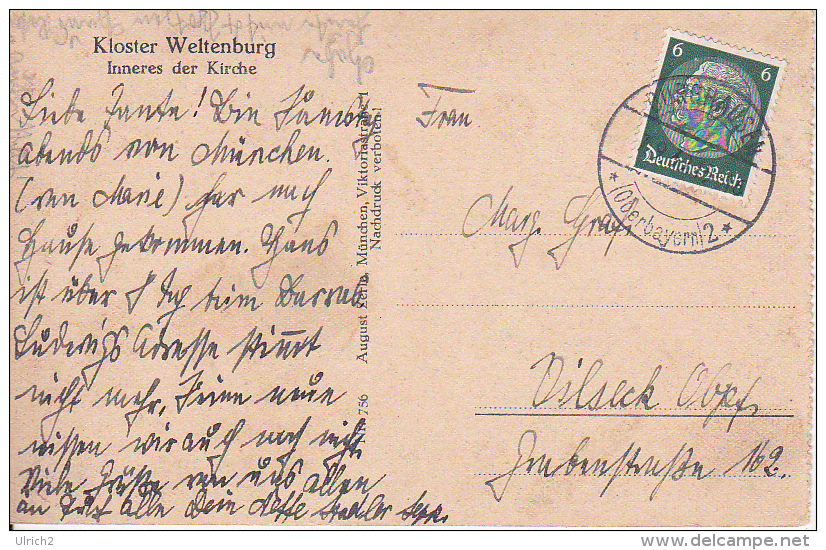 Kloster Weltenburg
Inneres der Kirche
Liebe Tante! Bin Samstag
abends von München.
(von Marie) her nach
Hause gekommen. Hans
ist über 8 Tg beim
Ludwigs Adresse stimmt
nicht mehr, seine neue
wissen wir auch noch nicht.
Viele Grüße von uns allen
an Euch alle Dein
Nr. 756 August Zerle, München, Viktoriastraße 1
Nachdruck verboten!
6 6
Deutsches Reich
(Oberbayern) 2
Frau
Marg. Graf
Vilseck Obpf.
Grabenstraße 162.
Ulrich2
www.delcampe.net